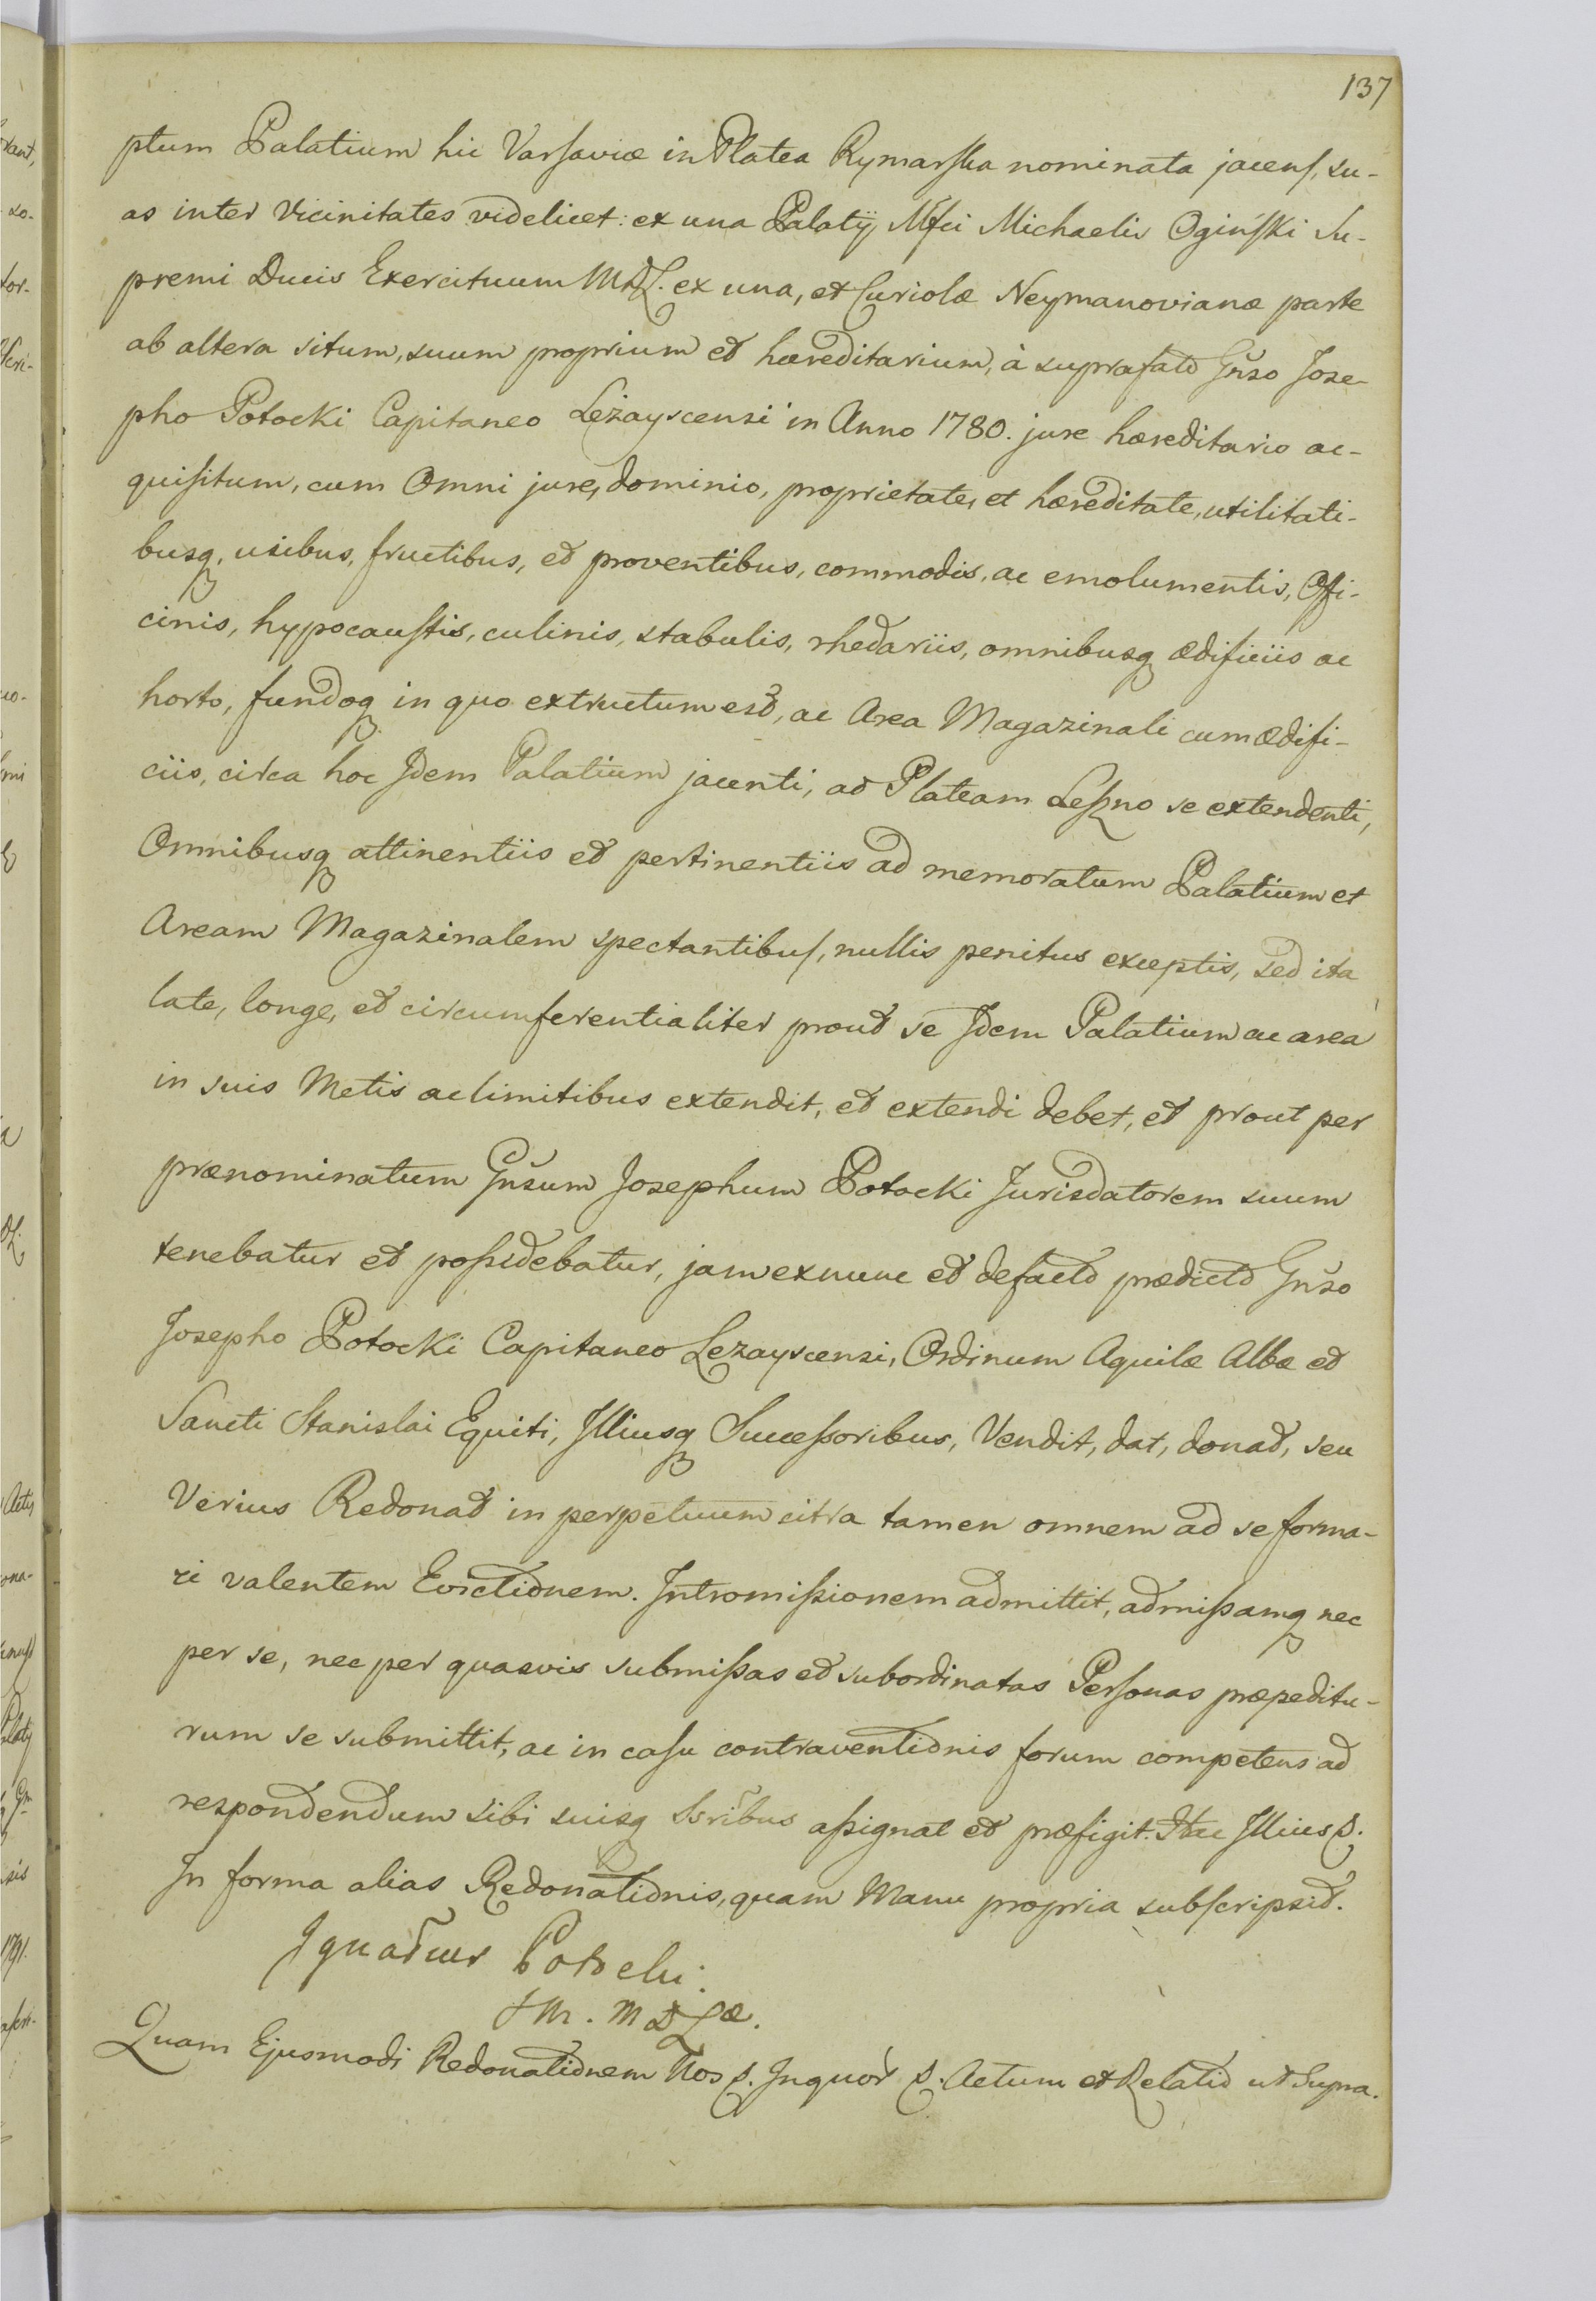 137
ptum Palatium hic Varsaviæ in Platea Rymarska nominata jacens, su-
as inter Vicinitates videlicet: ex una Palatij Mfci Michaelis Ogiński Su-
premi Ducis Exercituum MDL. ex una, et Curiolæ Neymanovianæ parte
ab altera situm, suum proprium et hæreditarium, à suprafato Gnso Jose-
pho Potocki Capitaneo Leżayscensi in Anno 1780. jure hæreditario ac-
quisitum, cum Omni jure, dominio, proprietate, et hæreditate, utilitati-
busq, usibus, fructibus, et proventibus, commodis, ac emolumentis, Offi-
cinis, hypocaustis, culinis, stabulis, rhedariis, omnibusq ædificiis ac
horto, fundoq in quo extructum est, ac Area Magazinali cum ædifi-
ciis, circa hoc Idem Palatium jacenti, ad Plateam Leszno se extendenti,
Omnibusq attinentiis et pertinentiis ad memoratum Palatium et
Aream Magazinalem spectantibus, nullis penitus exceptis, sed ita
late, longe, et circumferentialiter prout se Idem Palatium ac area
in suis Metis ac limitibus extendit, et extendi debet, et prout per
prænominatum Gnsum Josephum Potocki Jurisdatorem suum
tenebatur et possidebatur, jam ex nunc et de facto prædicto Gnso
Josepho Potocki Capitaneo Lezayscensi, Ordinum Aquilæ Albæ et
Sancti Stanislai Equiti, Illiusq Successoribus, Vendit, dat, donat, seu
Verius Redonat in perpetuum citra tamen omnem ad se forma-
ri valentem Evictionem. Intromissionem admittit, admissamq nec
per se, nec per quasvis submissas et subordinatas Personas præpeditu-
rum se submittit, ac in casu contraventionis forum competens ad
respondendum sibi suisq Ssribus assignat et præfigit. Hac Illius p.
In forma alias Redonationis, quam Manu propria subscripsit.
Ignatius Potocki
MDLæ.
Quam Ejusmodi Redonationem Nos p. Inquor p. Actum et Relatio ut Supra.